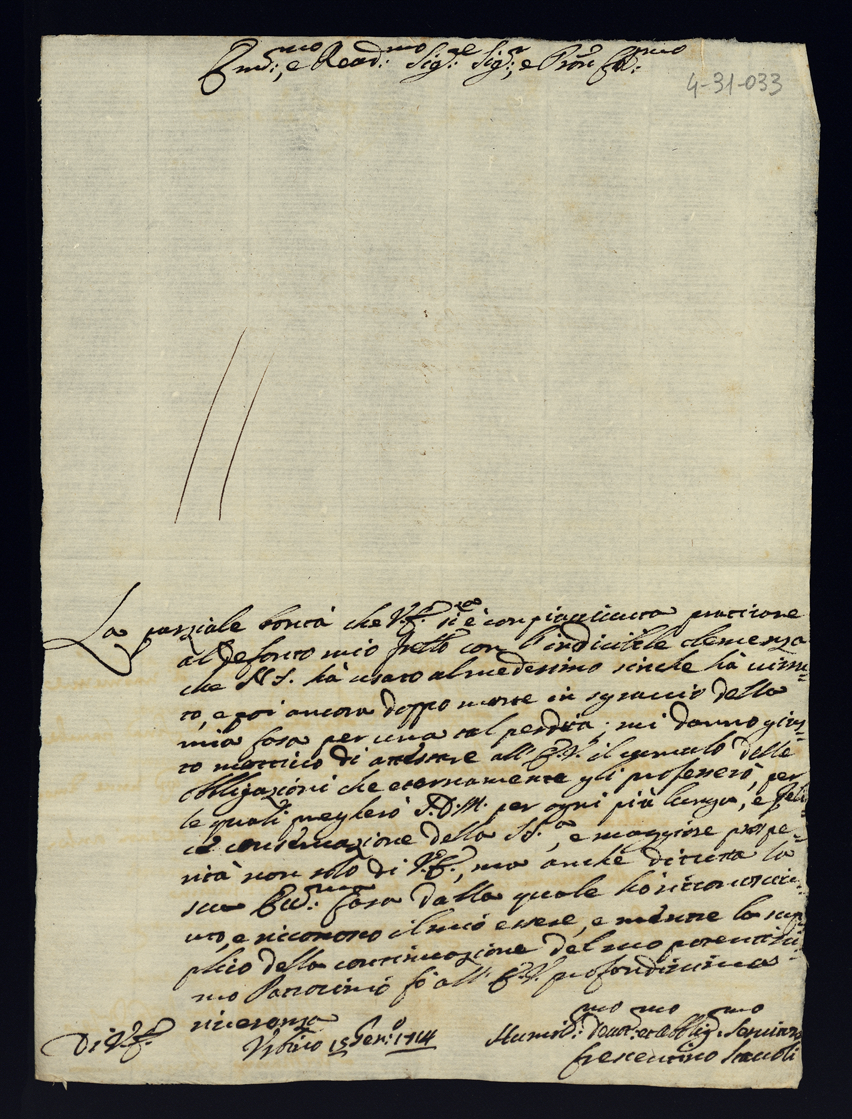 Em:mo, e Revd:mo Sig:re Sig:r, e Pron Col:mo
4-31-033
La parziale bontà che V.E. si è compiacciuta
al defonto mio frello con l'indicibile clemenza
che N.S. hà usato al medesimo sinche hà vissu=
to, e poi ancora doppo morte in sgravio della
mia Casa per una tal perdita; mi danno gius=
to mottivo di attestare all'E.V. il cumulo delle
obligazioni che eternamente gli professerò, per
le quali pregherò S.D.M. per ogni più lunga, e feli=
ce conservazione della S.S.a, e maggiore prospe=
rità non solo di V.E., ma anche di tutta la
sua Ecc:ma Casa dalla quale hò riconosciu=
uto, e riconosco il mio essere, e mentre la sup=
plico della continuazione del suo potentissi=
mo Patrocinio fò all'E.V. profondissima
riverenza
Di V.E. Urbino 15 Gen:o 1714 Humil:mo Devot:mo et Oblig:mo Servitore
Crescentino Staccoli